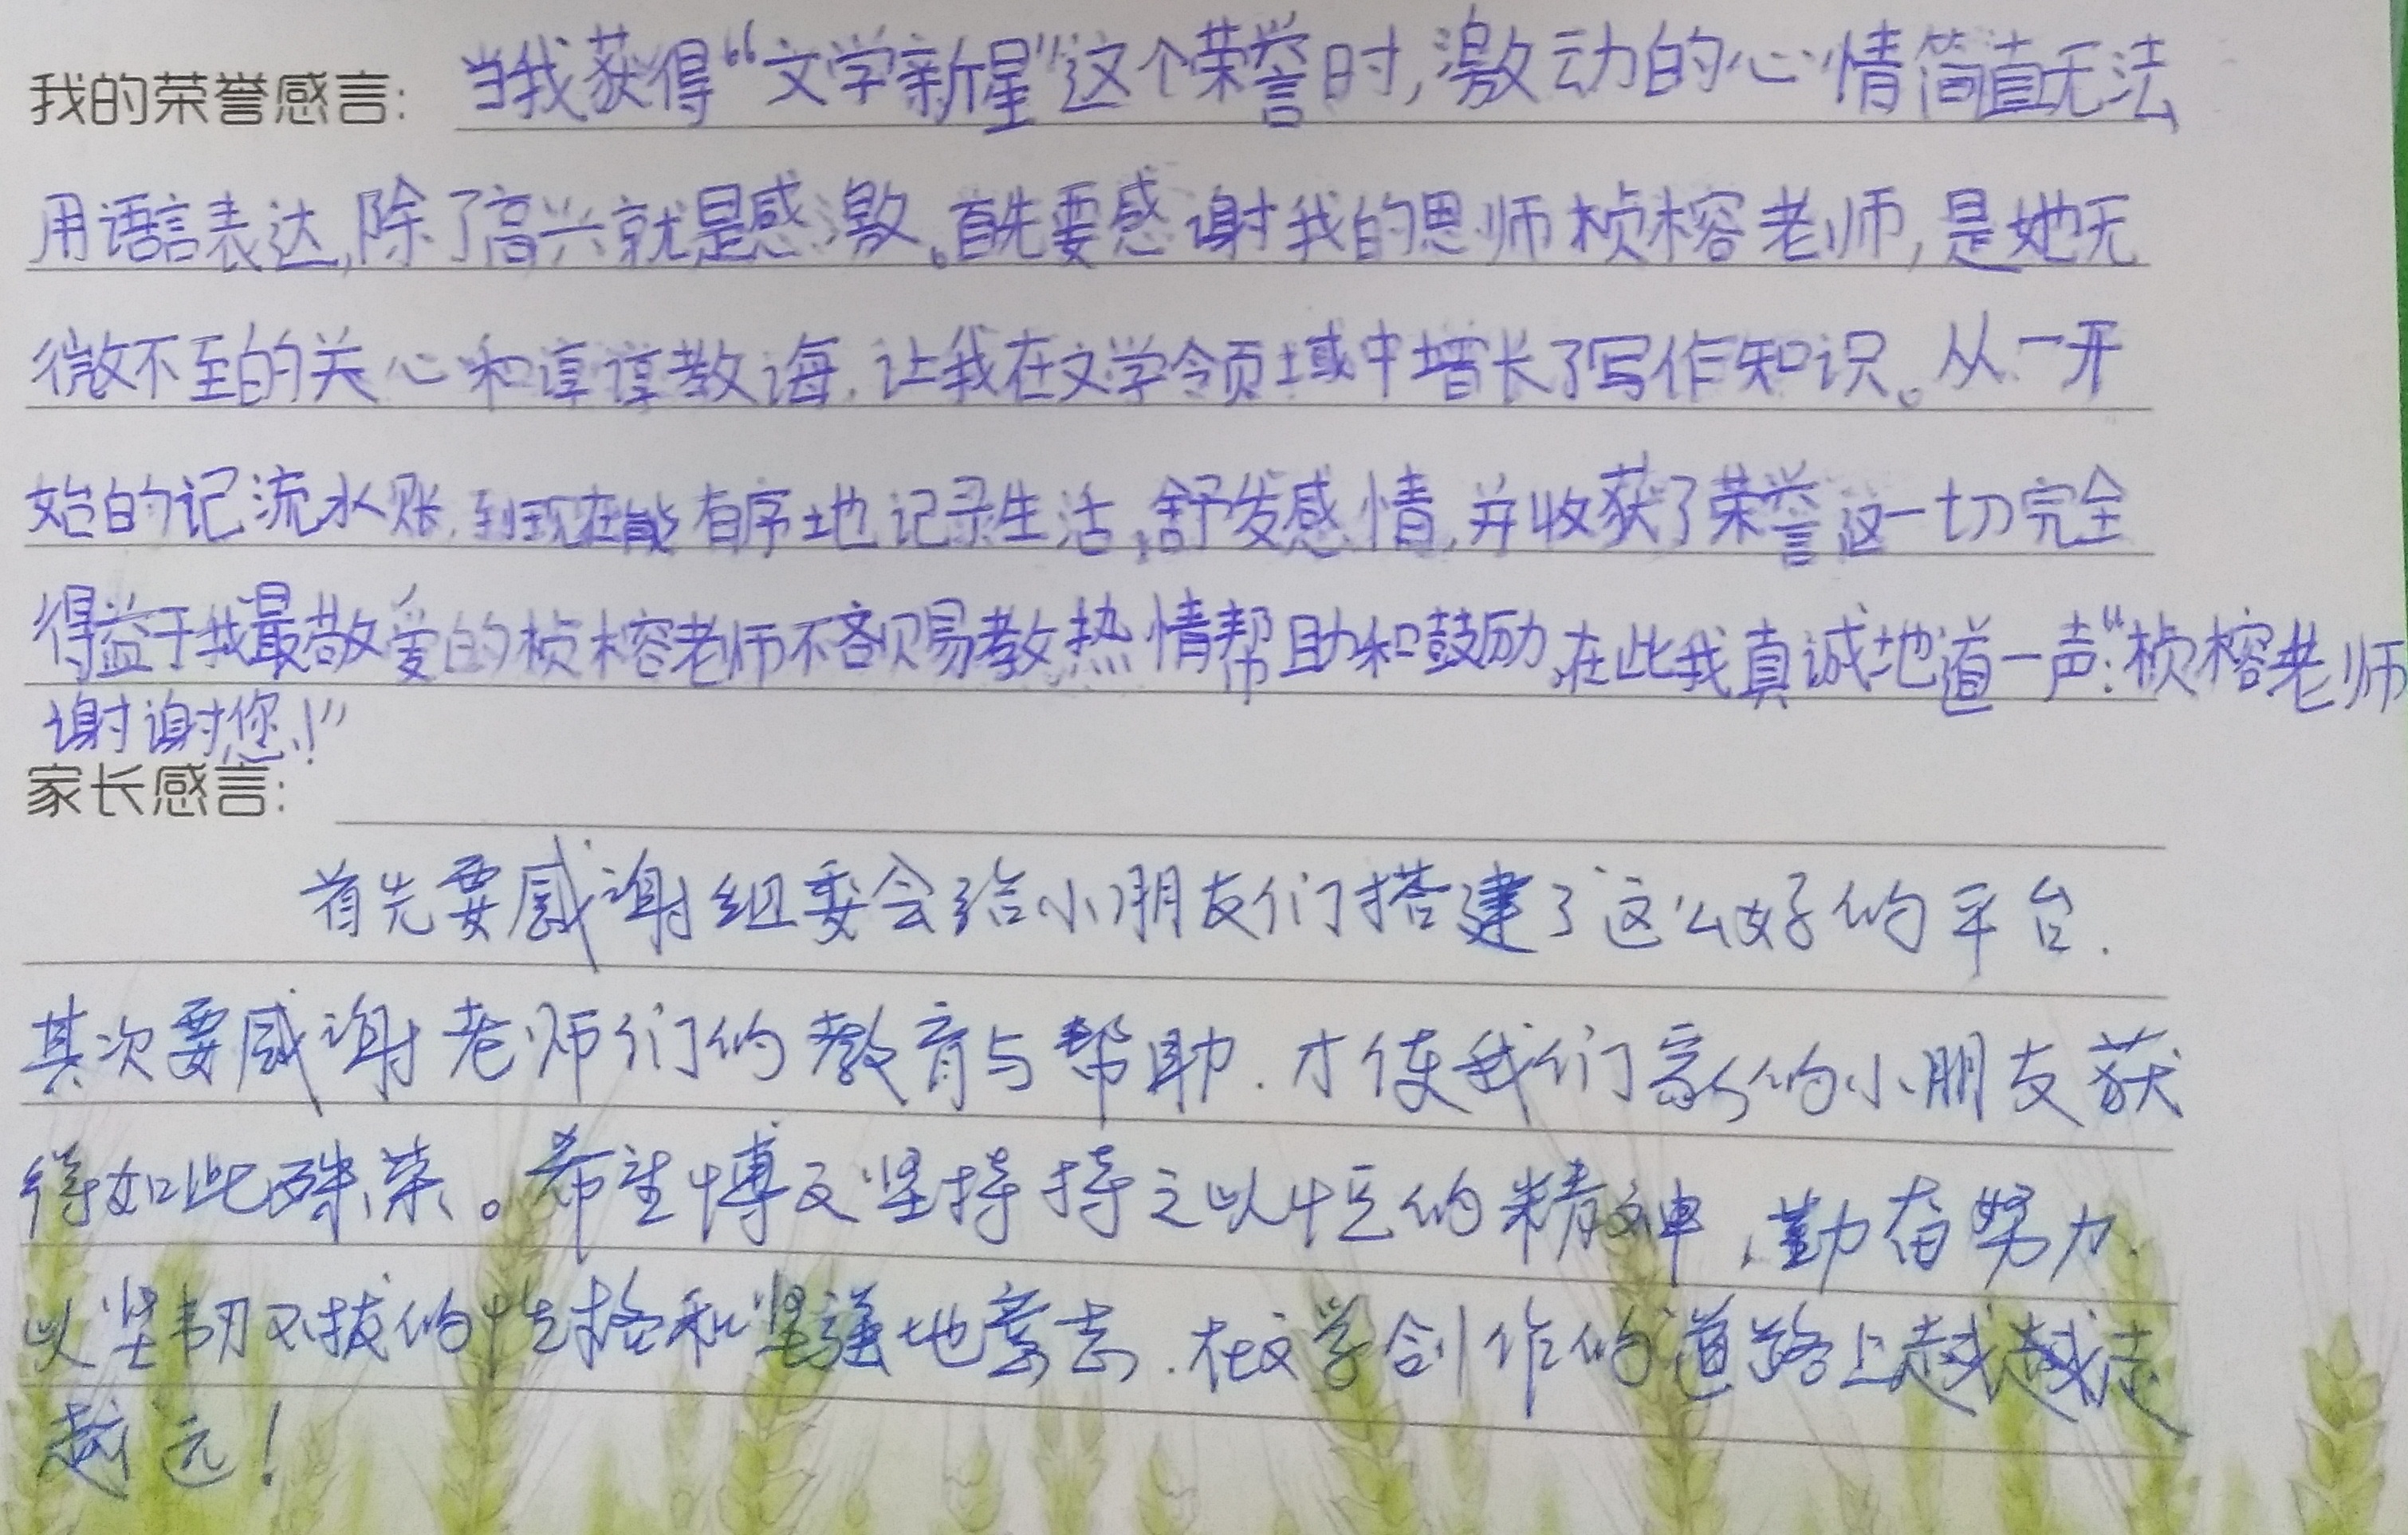 我的荣誉感言：当我获得“文学新星”这个荣誉时,激动的心情简直无法
用语言表达,除了高兴就是感激。首先要感谢我的恩师桢榕老师,是她无
微不至的关心和谆谆教诲,让我在文学领域中增长了写作知识。从一开
始的记流水账,到现在能有序地记录生活,舒发感情,并收获了荣誉这一切完全
得益于我最敬爱的桢榕老师不吝赐教,热情帮助和鼓励,在此我真诚地道一声:“桢榕老师
谢谢您!”
家长感言：
首先要感谢组委会给小朋友们搭建了这么好的平台.
其次要感谢老师们的教育与帮助.才使我们家的小朋友获
得如此殊荣。希望博文坚持持之以恒的精神,勤奋努力.
以坚韧不拔的性格和坚强地意志.在文学创作的道路上越越走
越远!